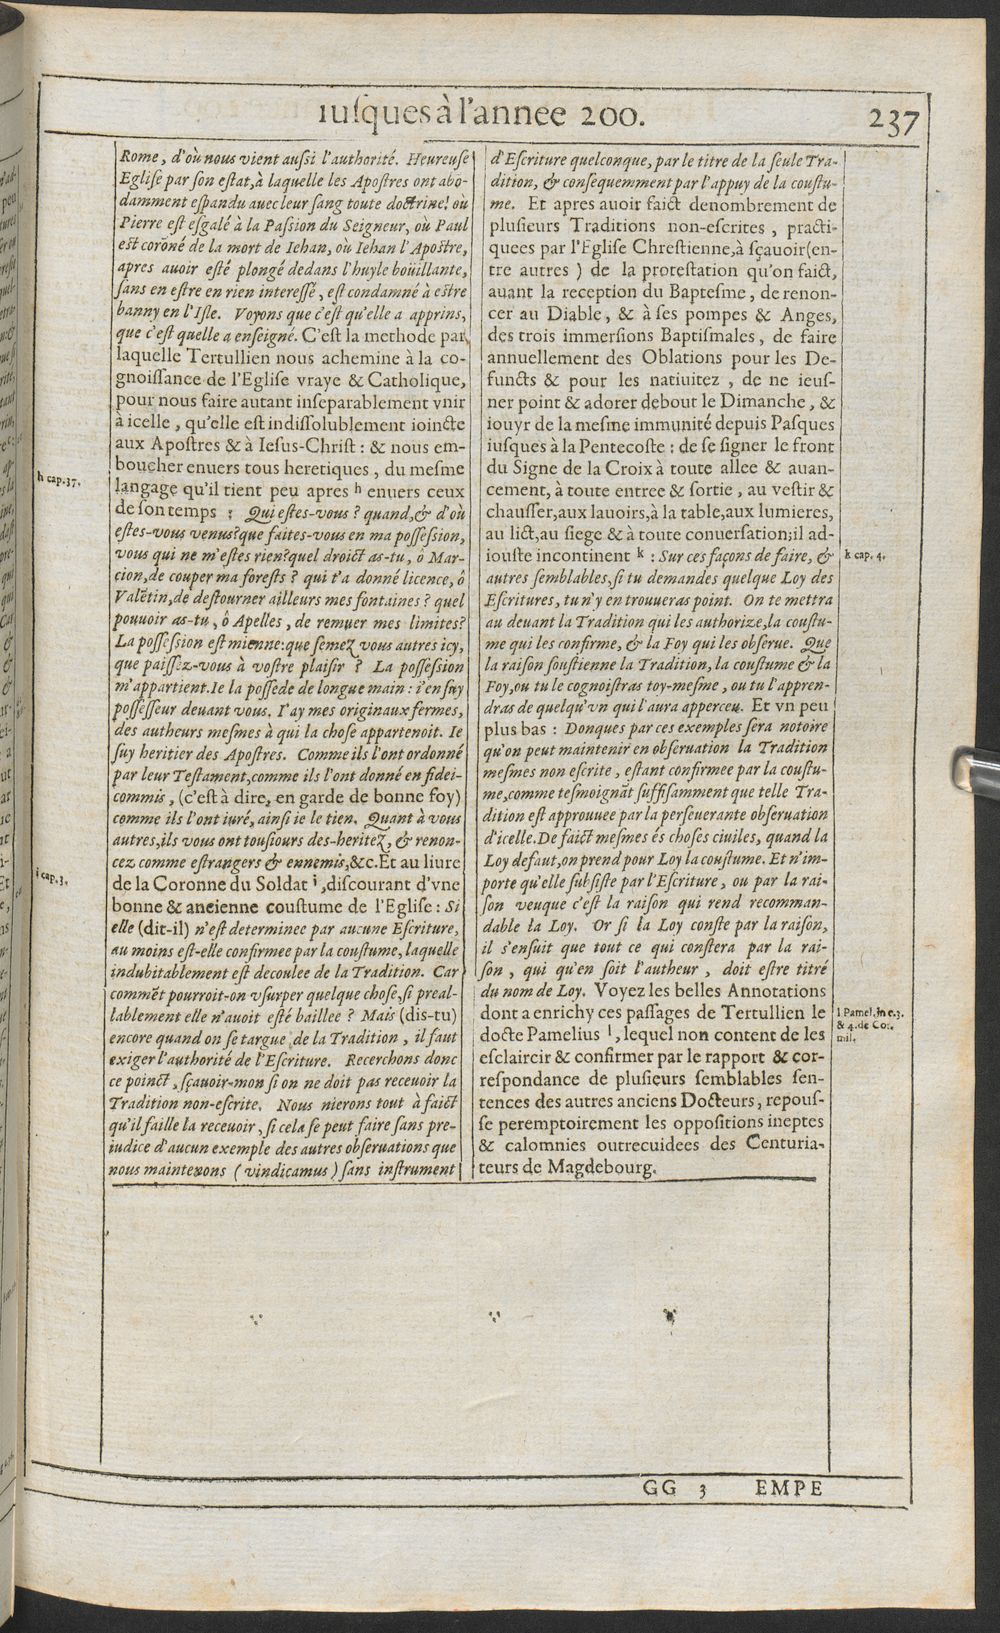 iuſques à l'annee 200.
237
Rome, d'où nous vient auſsi l'authorité. Heureuſe
Egliſe par ſon eſtat, à laquelle les Apoſtres ont abõ-
damment eſpandu auec leur ſang toute doctrine! où
Pierre eſt eſgalé à la Paſsion du Seigneur, où Paul
eſt corõné de la mort de Iehan, où Iehan l'Apoſtre,
apres auoir eſté plongé dedans l'huyle boüillante,
ſans en eſtre en rien intereſſé, eſt condamné à eſtre
banny en l'Iſle. Voyons que c'eſt qu'elle a apprins,
que c'eſt quelle a enſeigné. C'eſt la methode par
laquelle Tertullien nous achemine à la co-
gnoiſſance de l'Egliſe vraye & Catholique,
pour nous faire autant inſeparablement vnir
à icelle, qu'elle eſt indiſſolublement ioincte
aux Apoſtres & à Ieſus-Chriſt: & nous em-
boucher enuers tous heretiques, du meſme
langage qu'il tient peu apres h enuers ceux
de ſon temps: Qui eſtes-vous? quand, & d'où
eſtes-vous venus? que faites-vous en ma poſſeſsion,
vous qui ne m'eſtes rien? quel droict as-tu, ô Mar-
cion, de couper ma foreſts? qui t'a donné licence, ô
Valẽtin, de deſtourner ailleurs mes fontaines? quel
pouuoir as-tu, ô Apelles, de remuer mes limites?
La poſſeſsion eſt mienne: que ſemez vous autres icy,
que paiſſez-vous à voſtre plaiſir? La poſſeſsion
m'appartient. Ie la poſſede de longue main: i'en ſuy
poſſeſſeur deuant vous. I'ay mes originaux fermes,
des autheurs meſmes à qui la choſe appartenoit. Ie
ſuy heritier des Apoſtres. Comme ils l'ont ordonné
par leur Teſtament, comme ils l'ont donné en fidei-
commis, (c'eſt à dire, en garde de bonne foy)
comme ils l'ont iuré, ainſi ie le tien. Quant à vous
autres, ils vous ont touſiours des-heritez, & renon-
cez comme eſtrangers & ennemis, &c. Et au liure
de la Coronne du Soldat i, diſcourant d'vne
bonne & ancienne couſtume de l'Egliſe: Si
elle (dit-il) n'eſt determinee par aucune Eſcriture,
au moins eſt-elle confirmee par la couſtume, laquelle
indubitablement eſt decoulee de la Tradition. Car
commẽt pourroit-on vſurper quelque choſe, ſi preal-
lablement elle n'auoit eſté baillee? Mais (dis-tu)
encore quand on ſe targue de la Tradition, il faut
exiger l'authorité de l'Eſcriture. Recerchons donc
ce poinct, ſçauoir-mon ſi on ne doit pas receuoir la
Tradition non-eſcrite. Nous nierons tout à faict
qu'il faille la receuoir, ſi cela ſe peut faire ſans pre-
iudice d'aucun exemple des autres obſeruations que
nous maintenons (vindicamus) ſans inſtrument
h cap. 37.
i cap. 3.
d'Eſcriture quelconque, par le titre de la ſeule Tra-
dition, & conſequemment par l'appuy de la couſtu-
me. Et apres auoir faict denombrement de
pluſieurs Traditions non-eſcrites, practi-
quees par l'Egliſe Chreſtienne, à ſçauoir (en-
tre autres) de la proteſtation qu'on faict,
auant la reception du Bapteſme, de renon-
cer au Diable, & à ſes pompes & Anges,
des trois immerſions Baptiſmales, de faire
annuellement des Oblations pour les De-
functs & pour les natiuitez, de ne ieuſ-
ner point & adorer debout le Dimanche, &
iouyr de la meſme immunité depuis Paſques
iuſques à la Pentecoſte: de ſe ſigner le front
du Signe de la Croix à toute allee & auan-
cement, à toute entree & ſortie, au veſtir &
chauſſer, aux lauoirs, à la table, aux lumieres,
au lict, au ſiege & à toute conuerſation; il ad-
iouſte incontinent k: Sur ces façons de faire, &
autres ſemblables, ſi tu demandes quelque Loy des
Eſcritures, tu n'y en trouueras point. On te mettra
au deuant la Tradition qui les authorize, la couſtu-
me qui les confirme, & la Foy qui les obſerue. Que
la raiſon ſouſtienne la Tradition, la couſtume & la
Foy, ou tu le cognoiſtras toy-meſme, ou tu l'appren-
dras de quelqu'vn qui l'aura apperceu. Et vn peu
plus bas: Donques par ces exemples ſera notoire
qu'on peut maintenir en obſeruation la Tradition
meſmes non eſcrite, eſtant confirmee par la couſtu-
me, comme teſmoignãt ſuffiſamment que telle Tra-
dition eſt approuuee par la perſeuerante obſeruation
d'icelle. De faict meſmes és choſes ciuiles, quand la
Loy defaut, on prend pour Loy la couſtume. Et n'im-
porte qu'elle ſubſiſte par l'Eſcriture, ou par la rai-
ſon veuque c'eſt la raiſon qui rend recomman-
dable la Loy. Or ſi la Loy conſte par la raiſon,
il s'enſuit que tout ce qui conſtera par la rai-
ſon, qui qu'en ſoit l'autheur, doit eſtre titré
du nom de Loy. Voyez les belles Annotations
dont a enrichy ces paſſages de Tertullien le
docte Pamelius l, lequel non content de les
eſclaircir & confirmer par le rapport & cor-
reſpondance de pluſieurs ſemblables ſen-
tences des autres anciens Docteurs, repouſ-
ſe peremptoirement les oppoſitions ineptes
& calomnies outrecuidees des Centuria-
teurs de Magdebourg.
k cap. 4.
l Pamel. in c. 3.
& 4. de Co-
mil.
GG 3
EMPE